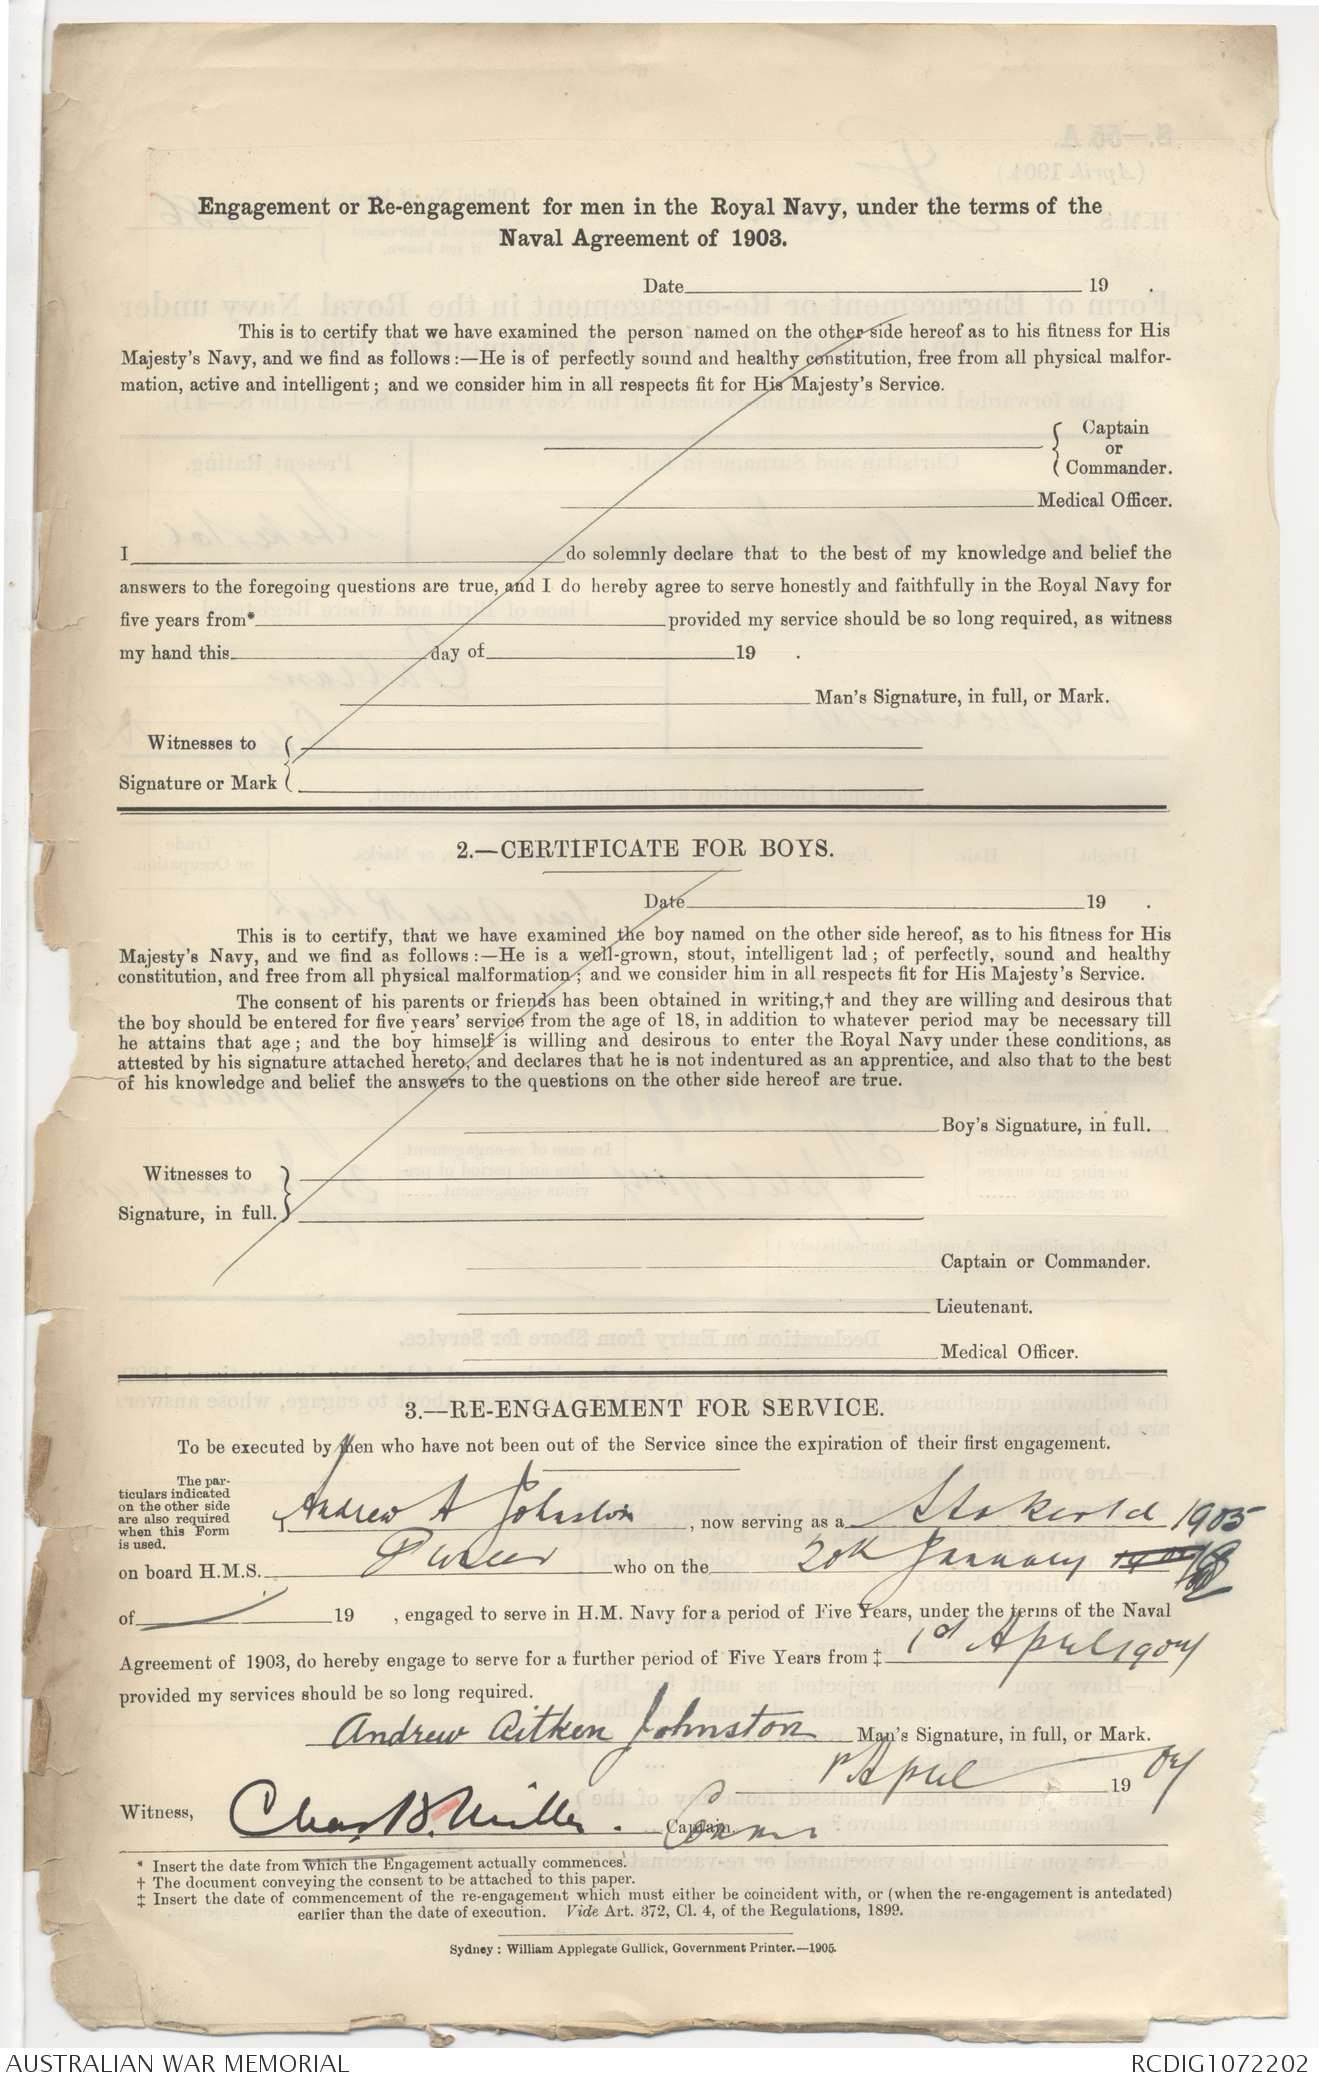 Engagement or Re-engagement for men in the Royal Navy, under the terms of the
Naval Agreement of 1903.
Date 19 .
This is to certify that we have examined the person named on the other side hereof as to his fitness for His
Majesty's Navy, and we find as follows:—He is of perfectly sound and healthy constitution, free from all physical malfor-
mation, active and intelligent; and we consider him in all respects fit for His Majesty's Service.
Captain
or
Commander.
Medical Officer.
I do solemnly declare that to the best of my knowledge and belief the
answers to the foregoing questions are true, and I do hereby agree to serve honestly and faithfully in the Royal Navy for
five years from* provided my service should be so long required, as witness
my hand this day of 19 .
Man's Signature, in full, or Mark.
Witnesses to
Signature or Mark
2.—CERTIFICATE FOR BOYS.
Date 19 .
This is to certify, that we have examined the boy named on the other side hereof, as to his fitness for His
Majesty's Navy, and we find as follows:—He is a well-grown, stout, intelligent lad; of perfectly, sound and healthy
constitution, and free from all physical malformation; and we consider him in all respects fit for His Majesty's Service.
The consent of his parents or friends has been obtained in writing,† and they are willing and desirous that
the boy should be entered for five years' service from the age of 18, in addition to whatever period may be necessary till
he attains that age; and the boy himself is willing and desirous to enter the Royal Navy under these conditions, as
attested by his signature attached hereto, and declares that he is not indentured as an apprentice, and also that to the best
of his knowledge and belief the answers to the questions on the other side hereof are true.
Boy's Signature, in full.
Witnesses to
Signature, in full.
Captain or Commander.
Lieutenant.
Medical Officer.
3.—RE-ENGAGEMENT FOR SERVICE.
To be executed by men who have not been out of the Service since the expiration of their first engagement.
The par-
ticulars indicated
on the other side
are also required
when this Form
is used.
I Andrew A Johnston, now serving as a Stoker 1cl 1905
on board H.M.S. who on the 20th January
of 19 , engaged to serve in H.M. Navy for a period of Five Years, under the terms of the Naval
Agreement of 1903, do hereby engage to serve for a further period of Five Years from ‡ 1st April 1907
provided my services should be so long required.
Andrew Aitken Johnston Man's Signature, in full, or Mark.
1st April 19 07
Witness, Chas B. Miller. Captain. Comr
* Insert the date from which the Engagement actually commences.
† The document conveying the consent to be attached to this paper.
‡ Insert the date of commencement of the re-engagement which must either be coincident with, or (when the re-engagement is antedated)
earlier than the date of execution. Vide Art. 372, Cl. 4, of the Regulations, 1899.
Sydney: William Applegate Gullick, Government Printer.—1905.
AUSTRALIAN WAR MEMORIAL
RCDIG1072202